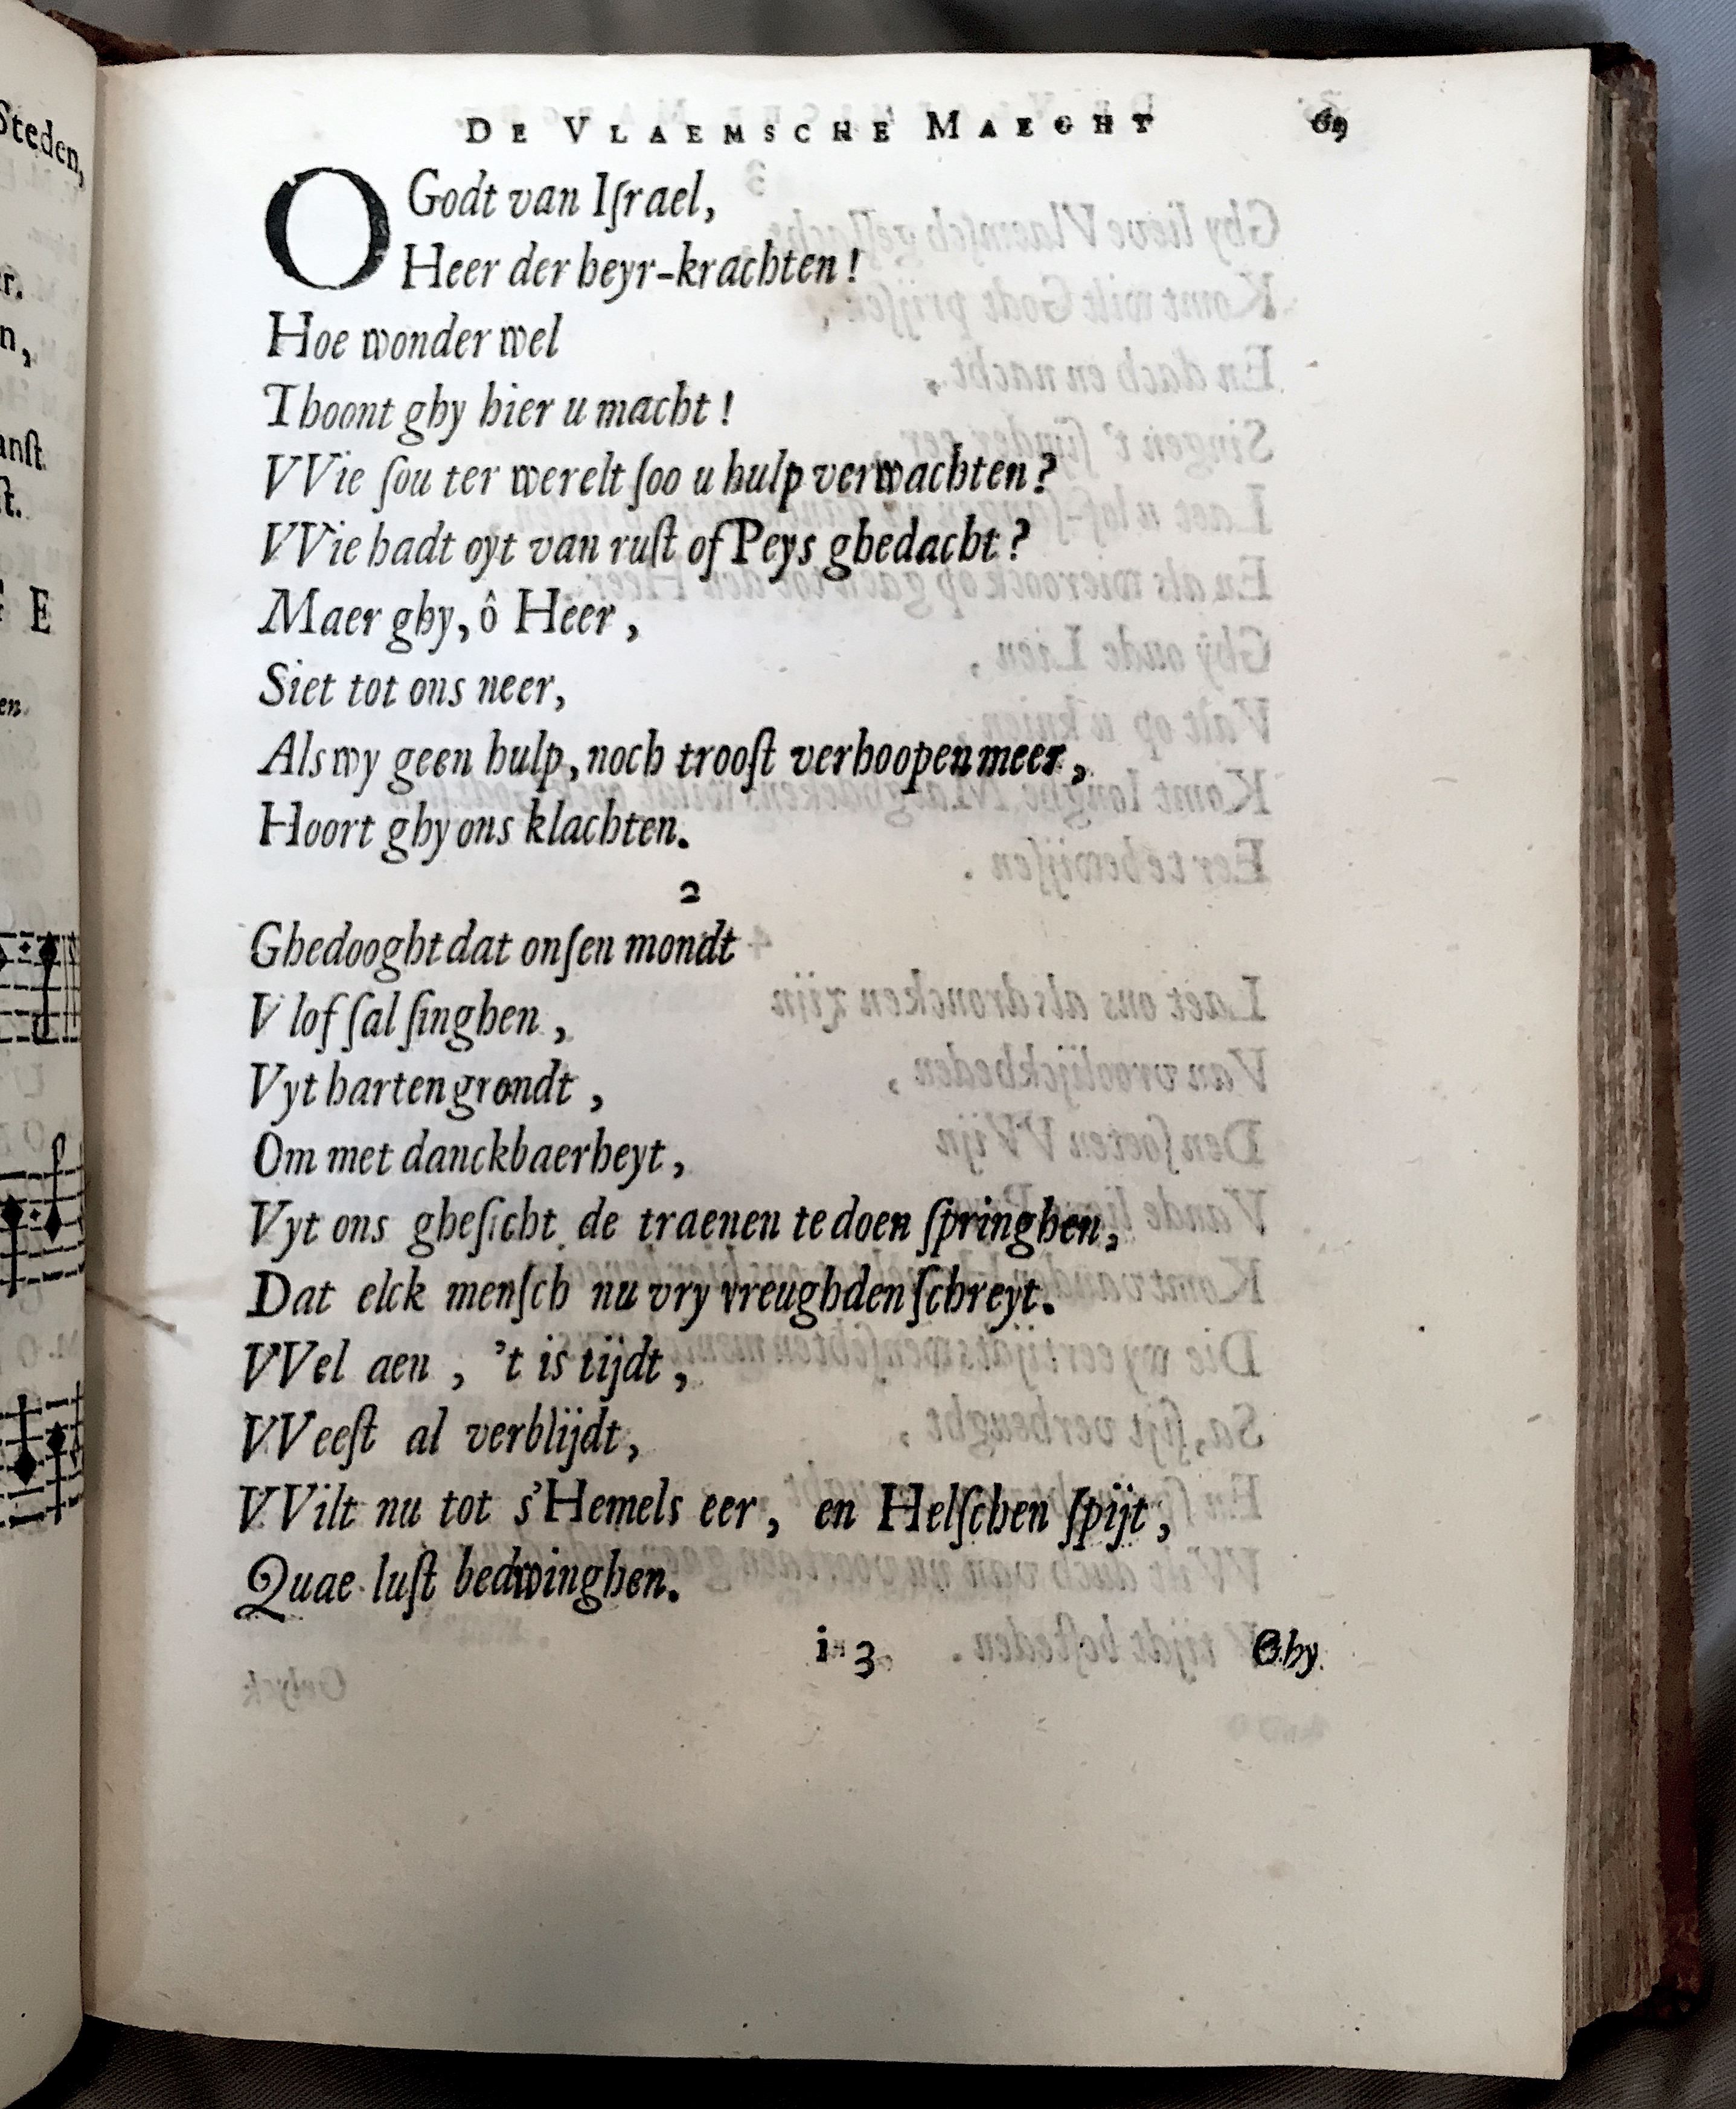 DE VLAEMSCHE MAEGHT 69
O Godt van Iſrael,
Heer der heyr-krachten!
Hoe wonder wel
Thoont ghy hier u macht!
VVie ſou ter werelt ſoo u hulp verwachten?
VVie hadt oyt van ruſt of Peys ghedacht?
Maer ghy, ô Heer,
Siet tot ons neer,
Als wy geen hulp, noch trooſt verhoopen meer,
Hoort ghy ons klachten.
2
Ghedooght dat onſen mondt
V lof ſal ſinghen,
Vyt harten grondt,
Om met danckbaerheyt,
Vyt ons gheſicht de traenen te doen ſpringhen,
Dat elck menſch nu vry vreughden ſchreyt.
VVel aen, 't is tijdt,
VVeeſt al verblijdt,
VVilt nu tot s'Hemels eer, en Helſchen ſpijt,
Quae luſt bedwinghen.
i 3 Ghy
Steden,
r.
n,
anſt
ſt.
E
en.